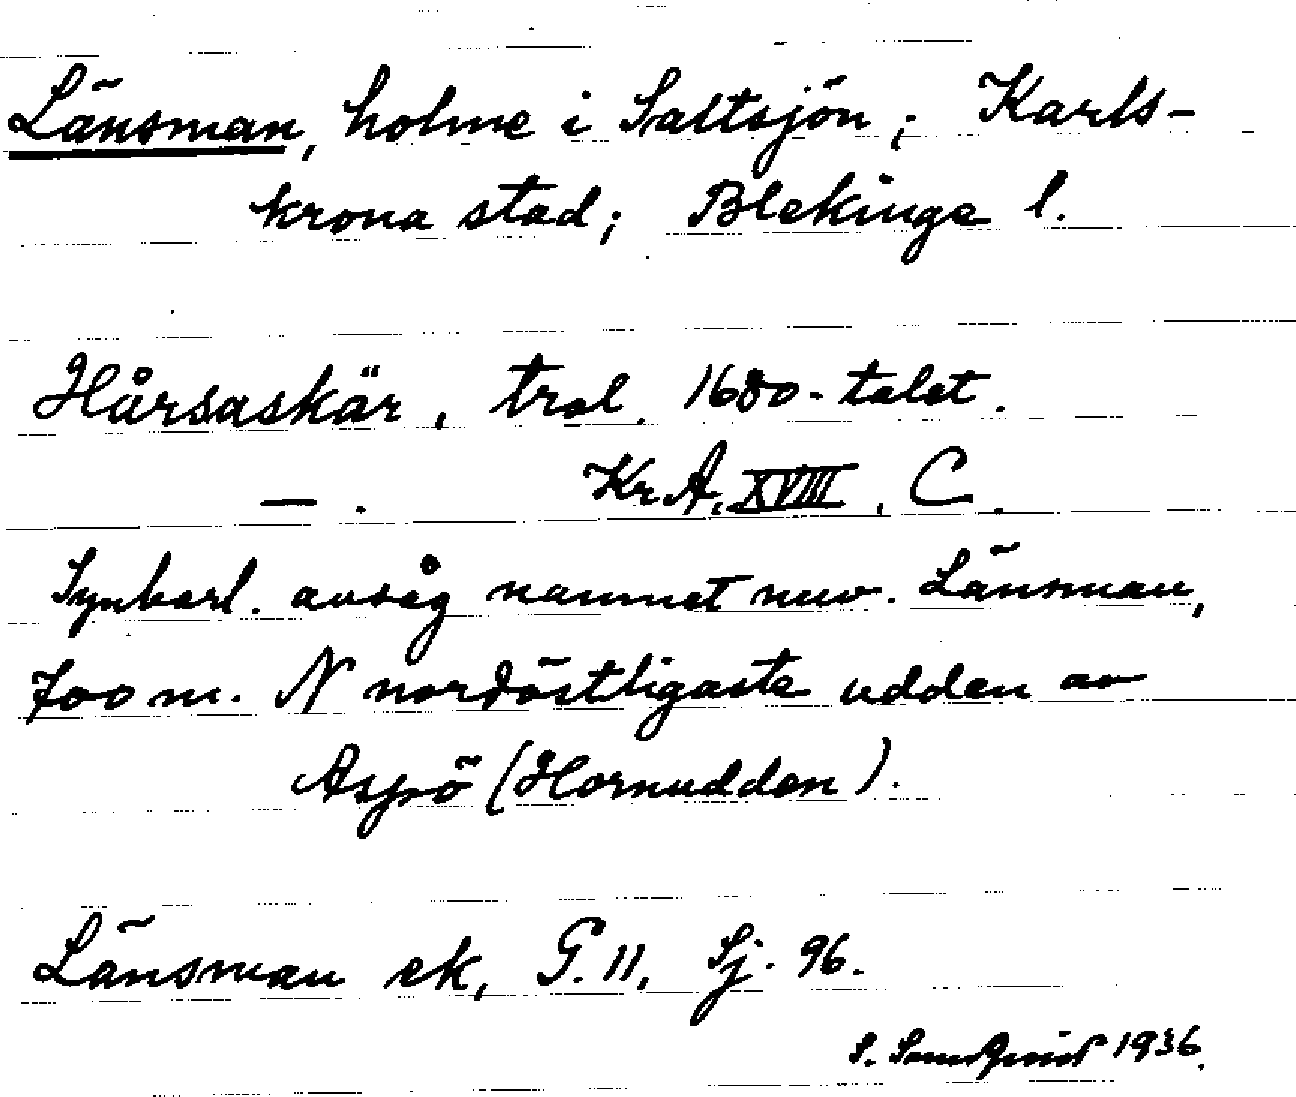 Länsman, holme i Saltsjön; Karls-
krona stad; Blekinge l.
Hårsaskär, trol. 1680-talet.
—. Kr.A. XVIII, C.
Synbarl. avsåg namnet nuv. Länsman,
700 m. N nordöstligaste udden av
Aspö (Hornudden).
Länsman ek, G. 11, Sj. 96.
S. 1936.